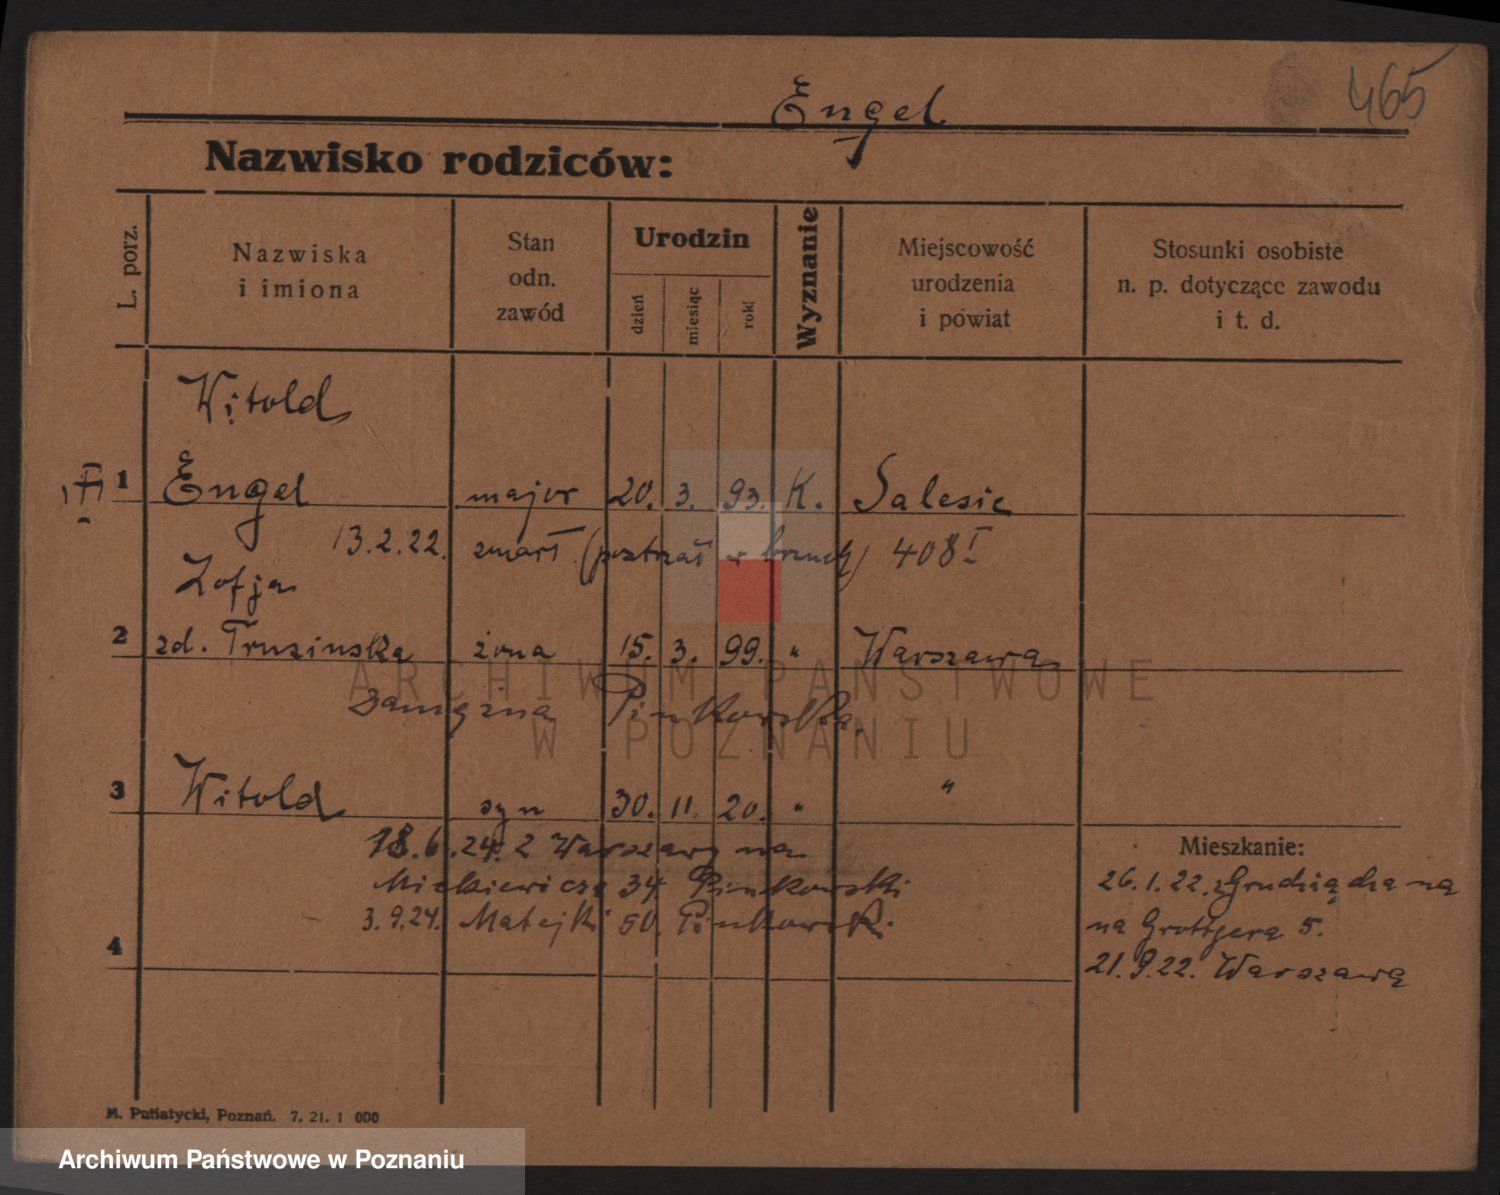 465
Engel
Nazwisko rodziców:
L. porz.
Nazwiska
i imiona
Stan
odn.
zawód
Urodzin
dzień
miesiąc
rok
Wyznanie
Miejscowość
urodzenia
i powiat
Stosunki osobiste
n. p. dotyczące zawodu
i t. d.
Witold
1 Engel major 20. 3. 93. K. Salesie
13.2.22. zmarł (postrzał w brzuch) 408 I
Zofja
2 zd. Truszinska żona 15. 3. 99. " Warszawa
zamężna Pinkowska
3 Witold syn 30. 11. 20. " "
18.6.24. z Warszawy na
Mickiewicza 34 Pinkowski
3.9.24. Matejki 50. Pinkowski
4
Mieszkanie:
26.1.22. z Grudziądza na
na Grottgera 5.
21.9.22. Warszawa
M. Putiatycki, Poznań. 7. 21. 1 000
ARCHIWUM PAŃSTWOWE
W POZNANIU
Archiwum Państwowe w Poznaniu